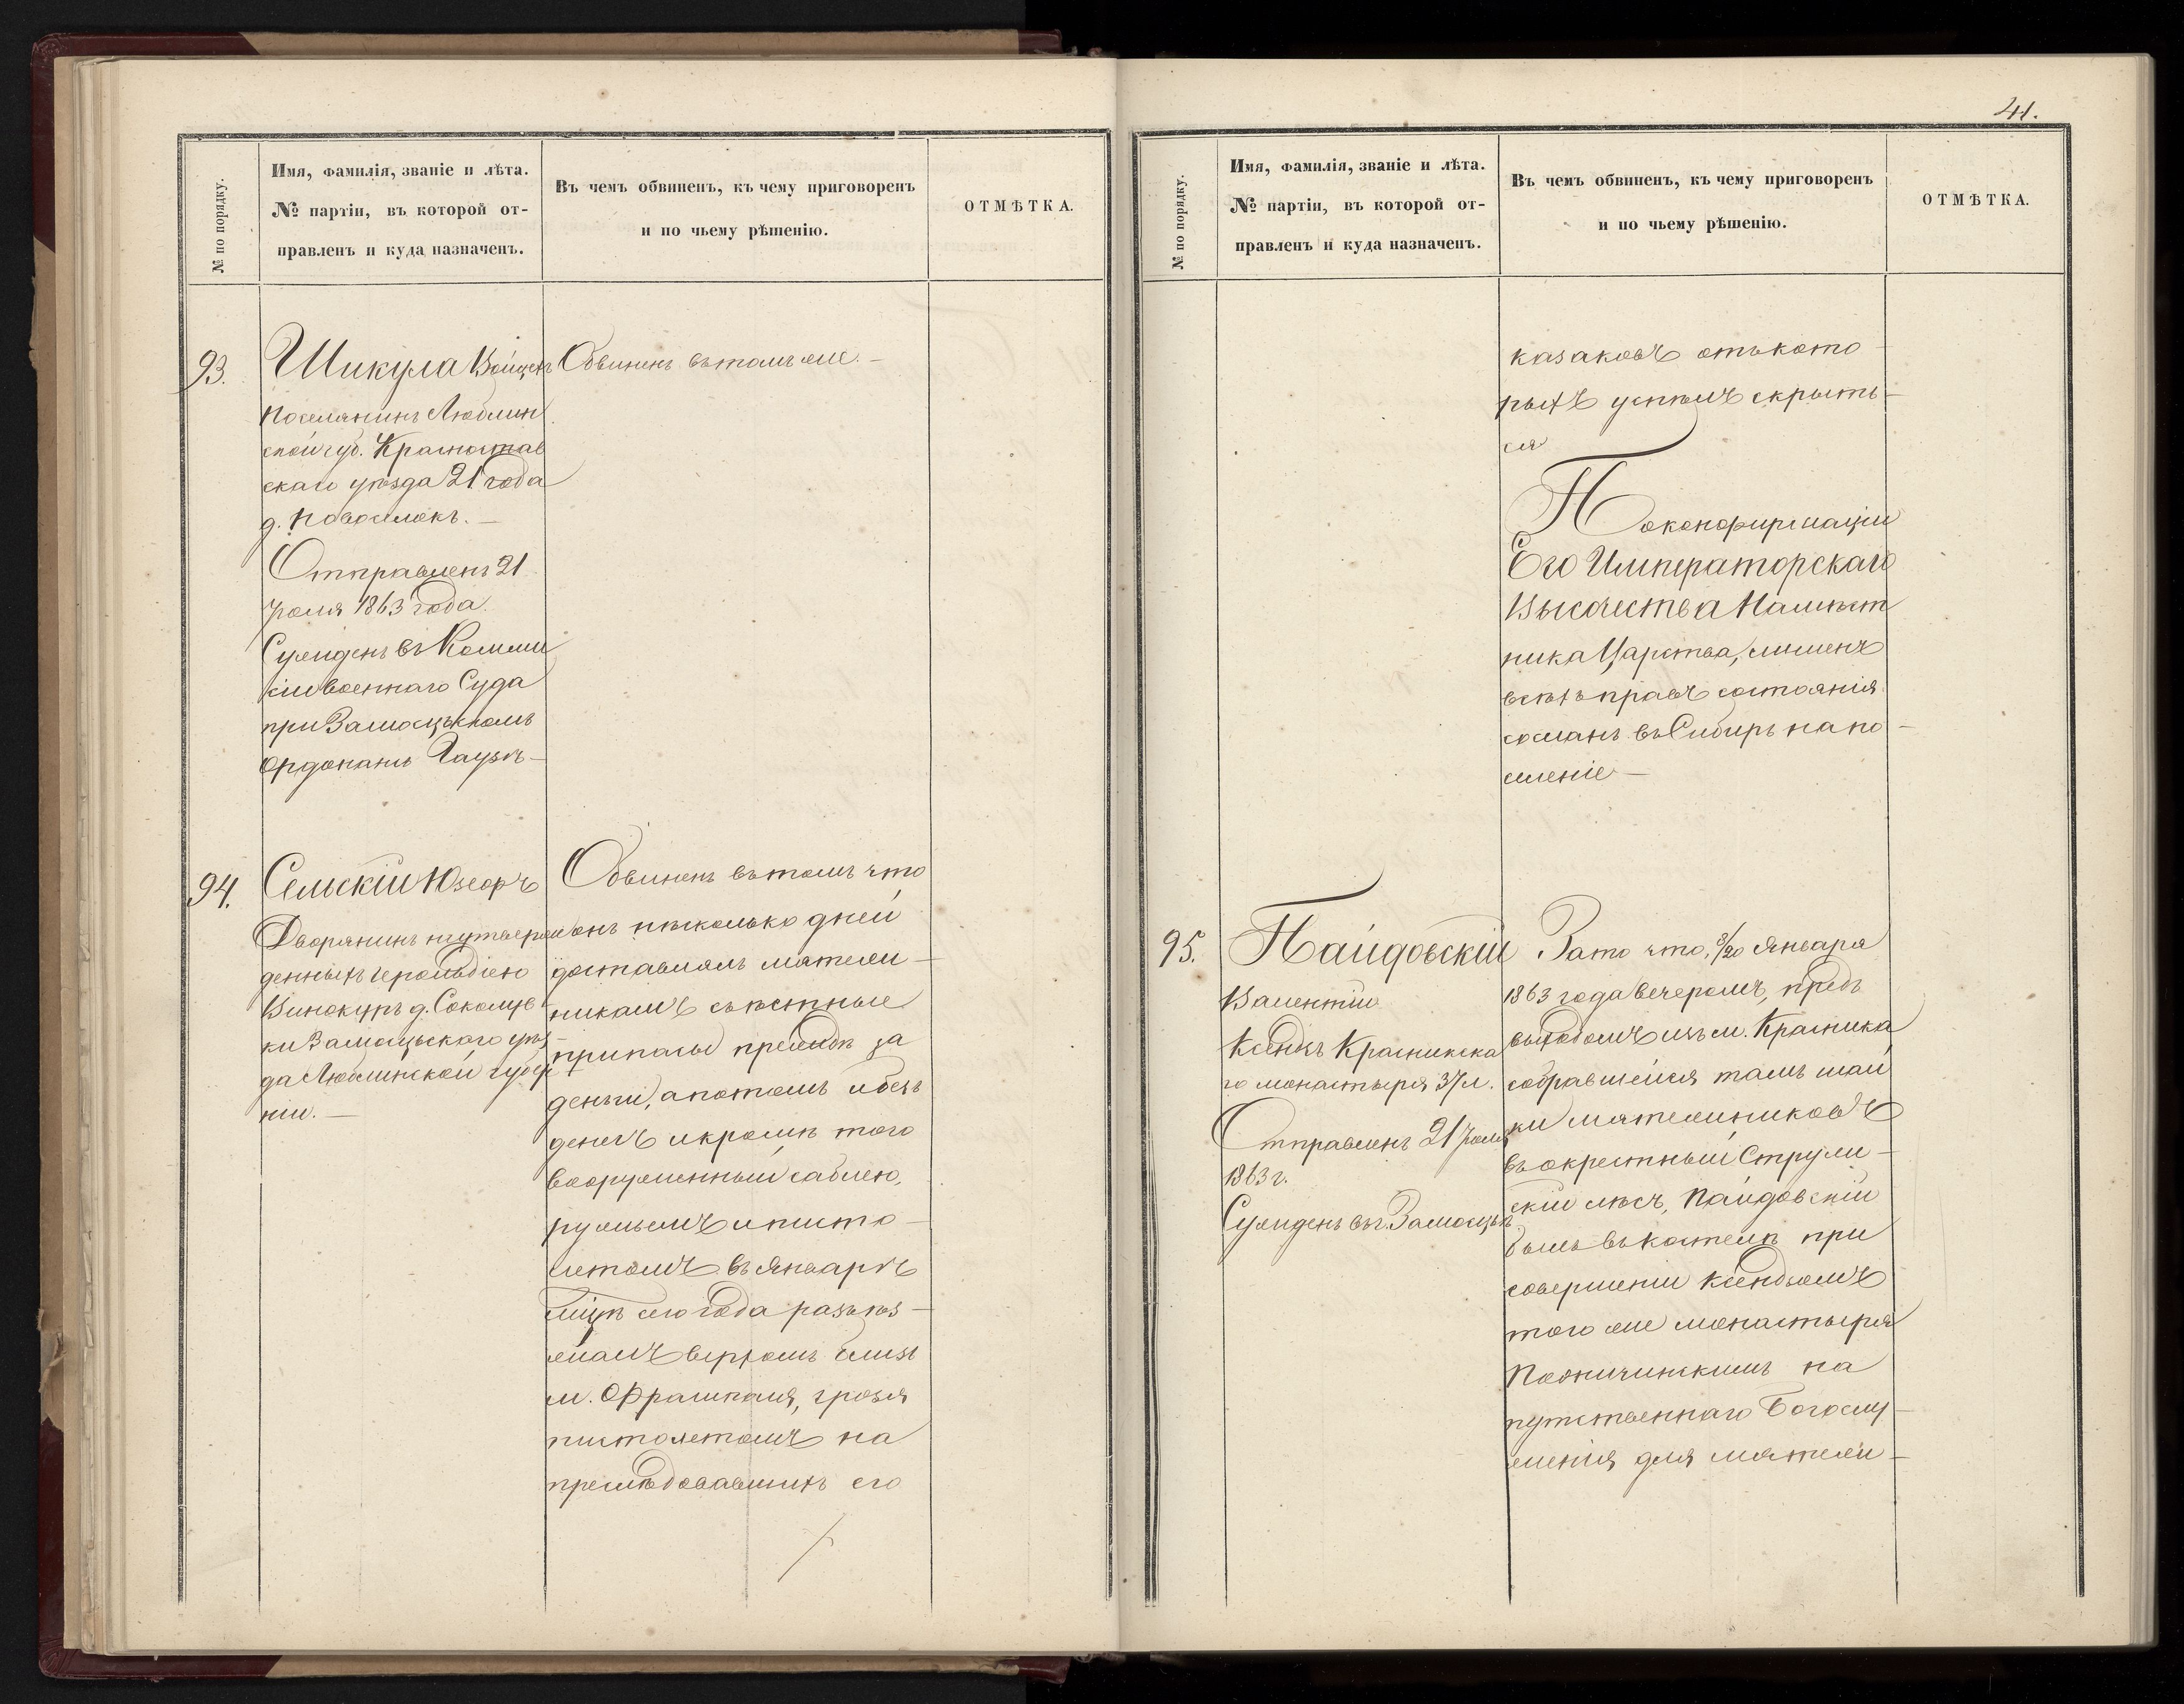 № по порядку.
Имя, фамилія, званіе и лѣта.
№ партіи, въ которой от-
правленъ и куда назначенъ.
Въ чемъ обвиненъ, къ чему приговоренъ
и по чьему рѣшенію.
ОТМѢТКА.
93.
Шикула Войцехъ
Поселянинъ Люблин
ской губ. Красностав
скаго уѣзда 21 года
д. Новоселокъ. —
Отправленъ 21
Іюля 1863 года.
Сужденъ въ Комми
сіи военнаго Суда
при Замосцьскомъ
Ордонансъ Гаузѣ —
Обвиненъ въ томъ же. —
94.
Сельскій Юзефъ
Дворянинъ неутверж
денныхъ герольдіею
Винокуръ д. Соколув
ки Замосцьскаго уѣз
да Люблинской губер
ніи. —
Обвиненъ въ томъ что
онъ нѣсколько дней
доставлялъ мятеж —
никамъ съѣстные
припасы прежде за
деньги, а потомъ и безъ
денегъ и кромѣ того
вооруженный саблею,
ружьемъ и писто —
летомъ въ Январѣ
мцѣ сего года разъѣз —
жалъ верхомъ близь
м. Фрамполя, грозя
пистолетомъ на
преслѣдовавшихъ его
41.
№ по порядку.
Имя, фамилія, званіе и лѣта.
№ партіи, въ которой от-
правленъ и куда назначенъ.
Въ чемъ обвиненъ, къ чему приговоренъ
и по чьему рѣшенію.
ОТМѢТКА.
казаковъ отъ кото —
рыхъ успѣлъ скрыть —
ся
По конфирмаціи
Его Императорскаго
Высочества Намѣст
ника Царства, лишенъ
всѣхъ правъ состоянія
сосланъ въ Сибирь на по —
селеніе —
95.
Пайдовскій
Валентій
Ксендзъ Красникска
го монастыря 37 л.
Отправленъ 21 Іюля
1863 г.
Сужденъ въ г. Замосцьѣ
За то что, 8/20 Января
1863 года вечеромъ, предъ
выходомъ изъ м. Красника
собравшейся тамъ шай
ки мятежниковъ
въ окрестный Струж —
скій лѣсъ, Пайдовскій
былъ въ костелѣ при
совершеніи ксендзомъ
того же монастыря
на
путственнаго Богослу —
женія для мятеж —